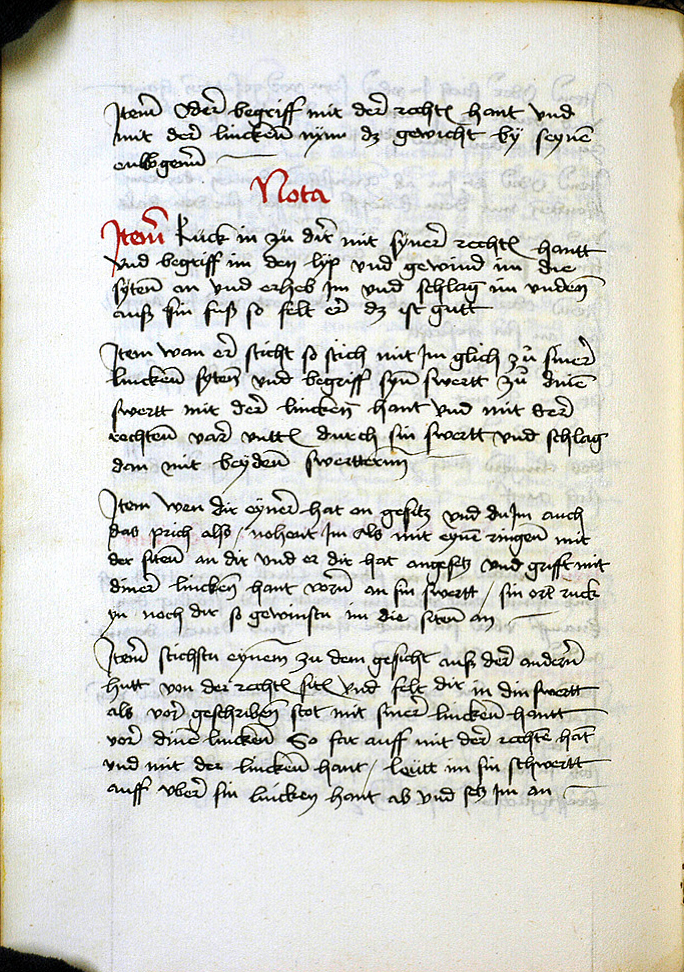 Item Oder begriff mit der rechten hant vnd
mit der lincken nym dz gewicht by seyne
enlbogenn
Nota
Item Ruck in zü dir mit syner rechten hantt
vnd begriff im den lyp vnd gewind im die
syten an vnd erheb Im vnd schlag im vnden
auß sin fuß so felt er dz ist gutt
Item wan er sticht so stich mit Im glich zu siner
lincken syten vnd begriff syn swertt zu dine
swertt mit der lincken hant vnd mit der
rechten var mitten durch sin swertt vnd schlag
dan mit beyden swertternn
Item wen dir eyner hat an gesitz vnd du Im auch
das prich also / nohent Im als mit eyne ringen mit
der siten an dir vnd er dir hat angesetz vnd grifft mit
diner lincken hant vorn an sin swertt / sin ort ruck
yn noch dir so gewinstu im die siten an
Item stichstu eynem zu dem gesicht auß der andern
hutt von der rechten siten vnd felt dir in din swertt
als vor geschriben stot mit siner lincken hantt
vor dine lincken So far auff mit der rechten hat
vnd mit der lincken hant / leütt im sin schwertt
auff vber sin lincken hant ab vnd setz Im an